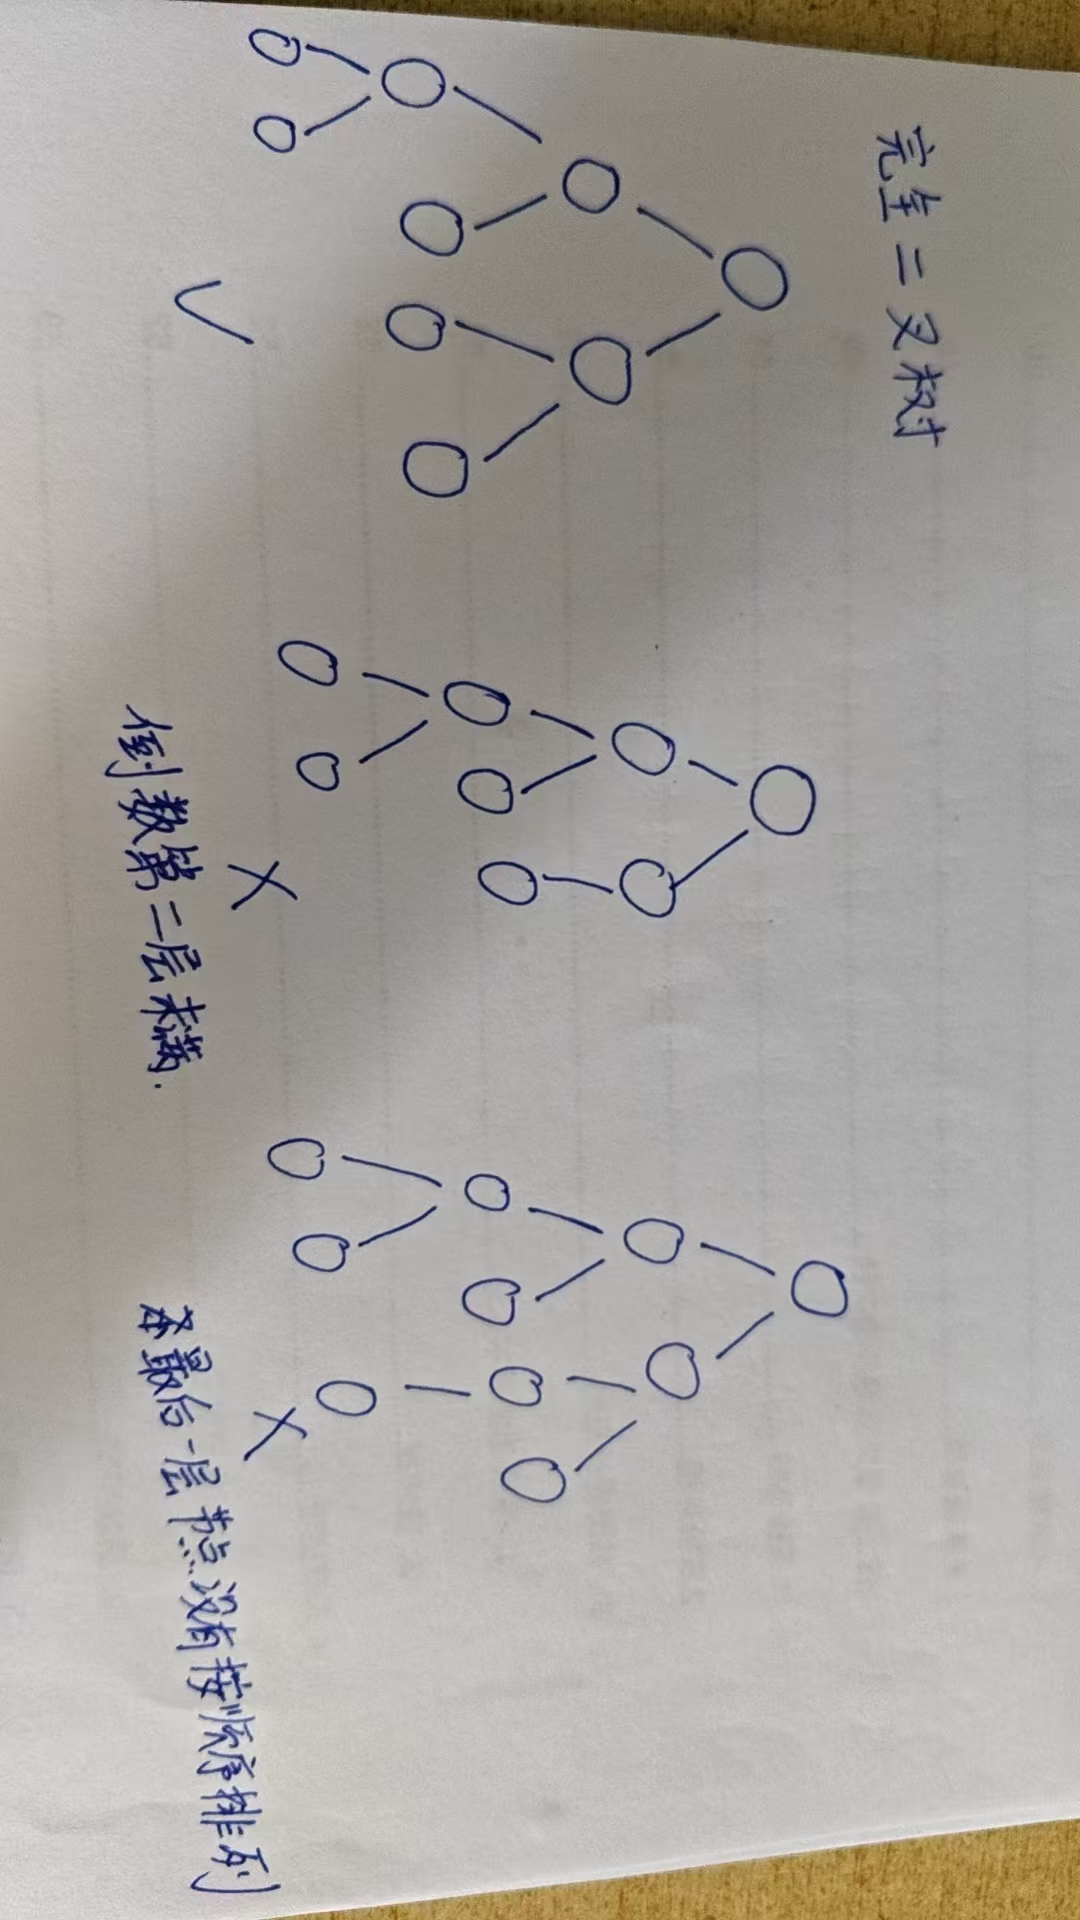 完全二叉树
✓
×
倒数第二层未满.
×
最后一层节点没有按顺序排列